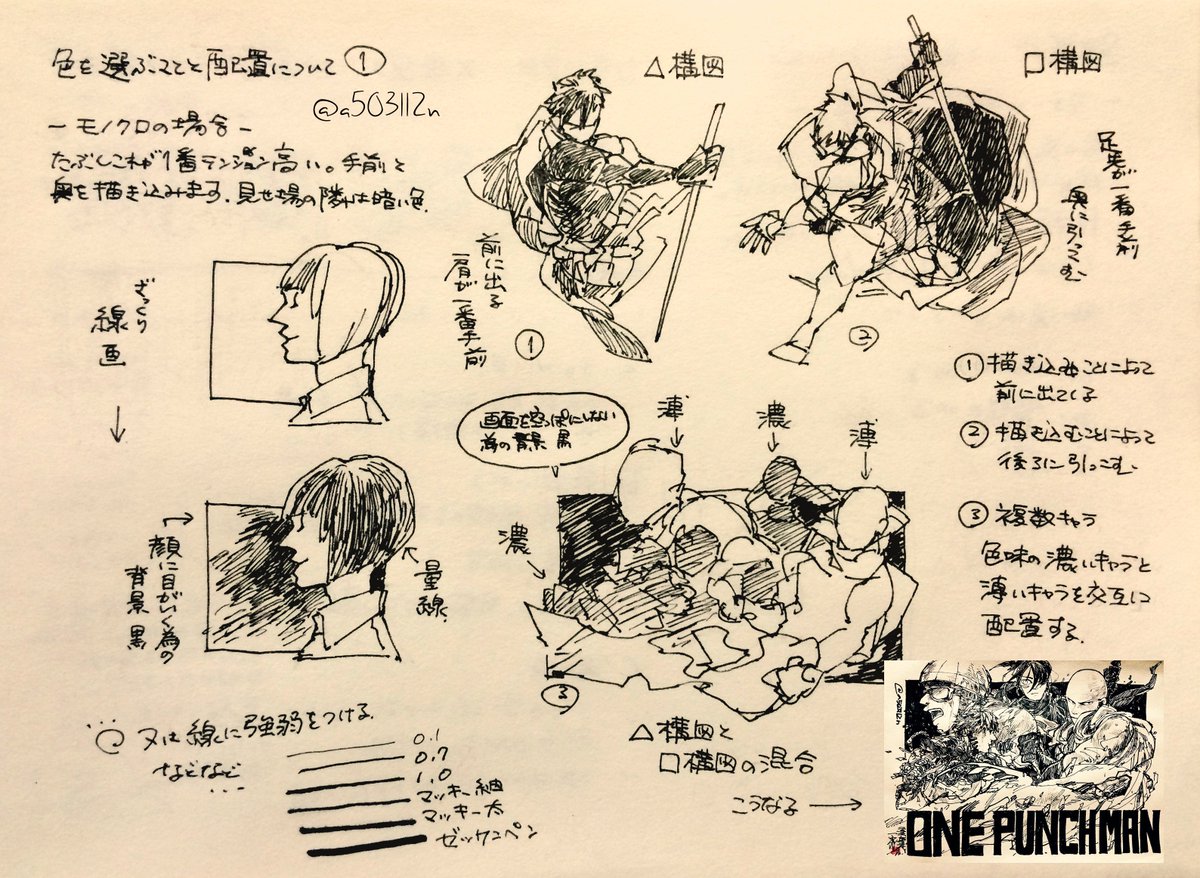 色を選ぶことと配置について ①
@a503112n
－モノクロの場合－
たぶんこれが1番テンション高い。手前と
奥を描き込みます。見せ場の隣は暗い色。
△構図
前に出る
肩が一番手前
①
□構図
足先が一番手前
奥に引っこむ
②
ざっくり
線画
↓
顔に目がいく為の
背景 黒
量線
画面を空っぽにしない
為の背景 黒
薄
濃
薄
濃
③
△構図と
□構図の混合
こうなる →
① 描き込むことによって
前に出てくる
② 描き込むことによって
後ろに引っこむ
③ 複数キャラ
色味の濃いキャラと
薄いキャラを交互に
配置する。
又は線に強弱をつける。
などなど
0.1
0.7
1.0
マッキー細
マッキー太
ゼッケンペン
@a503112n
ONE PUNCHMAN